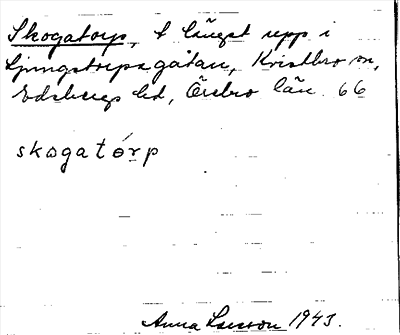 Skogatorp, t längst upp i
Ljungstorpagatan, Kvistbro sn,
Edsbergs hd, Örebro län. 66
skogatórp
Anna Larsson 1943.